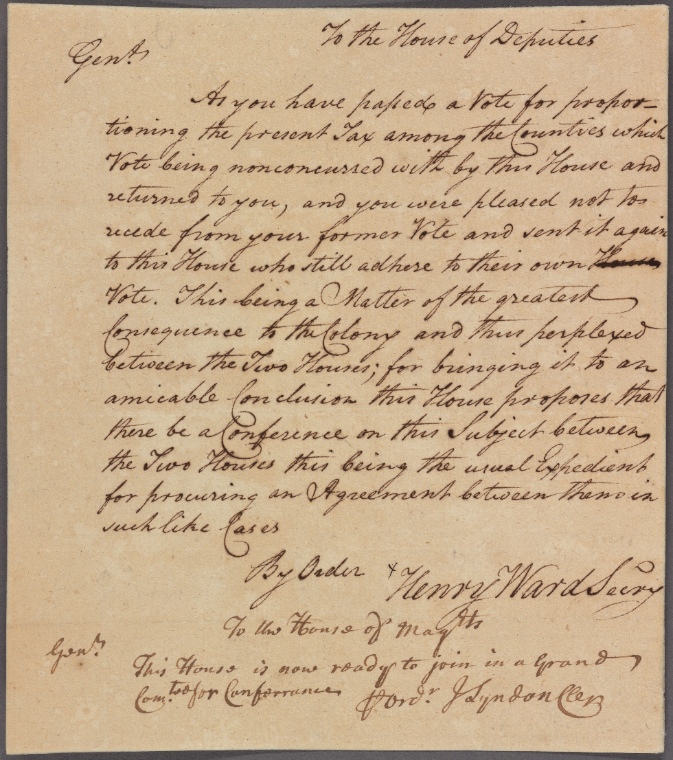 To the House of Deputies
Gent.
As you have passed a Vote for propor-
tioning the present Tax among the Counties which
Vote being nonconcurred with by this House and
returned to you, and you were pleased not to
recede from your former Vote and sent it again
to this House who still adhere to their own
Vote. This being a Matter of the greatest
Consequence to the Colony and thus perplexed
between the Two Houses; for bringing it to an
amicable Conclusion this House proposes that
there be a Conference on this Subject between
the Two Houses this being the usual Expedient
for procuring an Agreement between them in
such like Cases
By Order
Henry Ward Secry
To the House of Magts
Gent.
This House is now ready to join in a Grand
Comtee for Conferrance
J Lyndon Cler